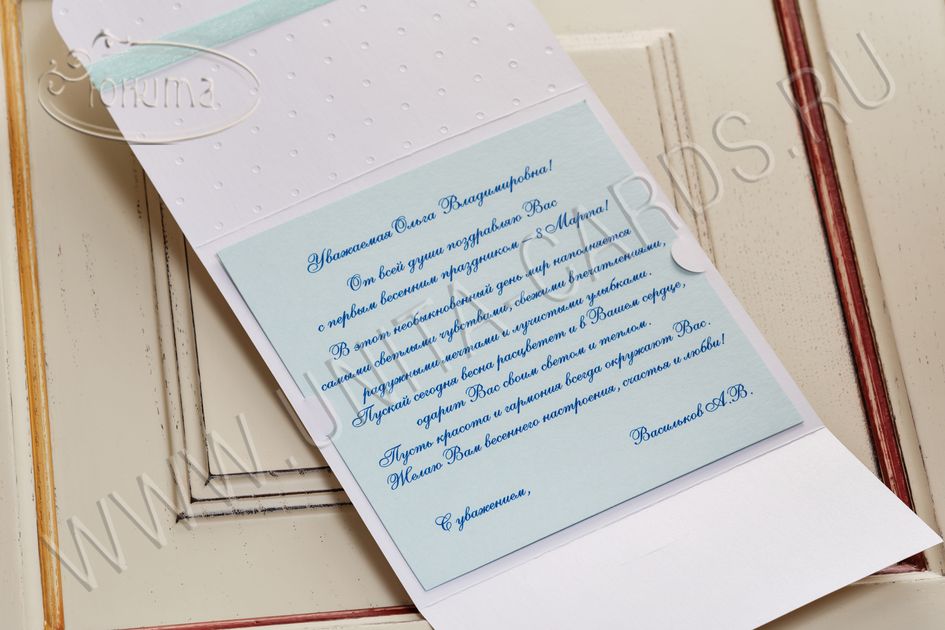 Юнита
WWW.UNITA-CARDS.RU
Уважаемая Ольга Владимировна!
От всей души поздравляю Вас
с первым весенним праздником – 8 Марта!
В этот необыкновенный день мир наполняется
самыми светлыми чувствами, свежими впечатлениями,
радужными мечтами и лучистыми улыбками.
Пускай сегодня весна расцветет и в Вашем сердце,
одарит Вас своим светом и теплом.
Пусть красота и гармония всегда окружают Вас.
Желаю Вам весеннего настроения, счастья и любви!
С уважением,
Васильков А.В.